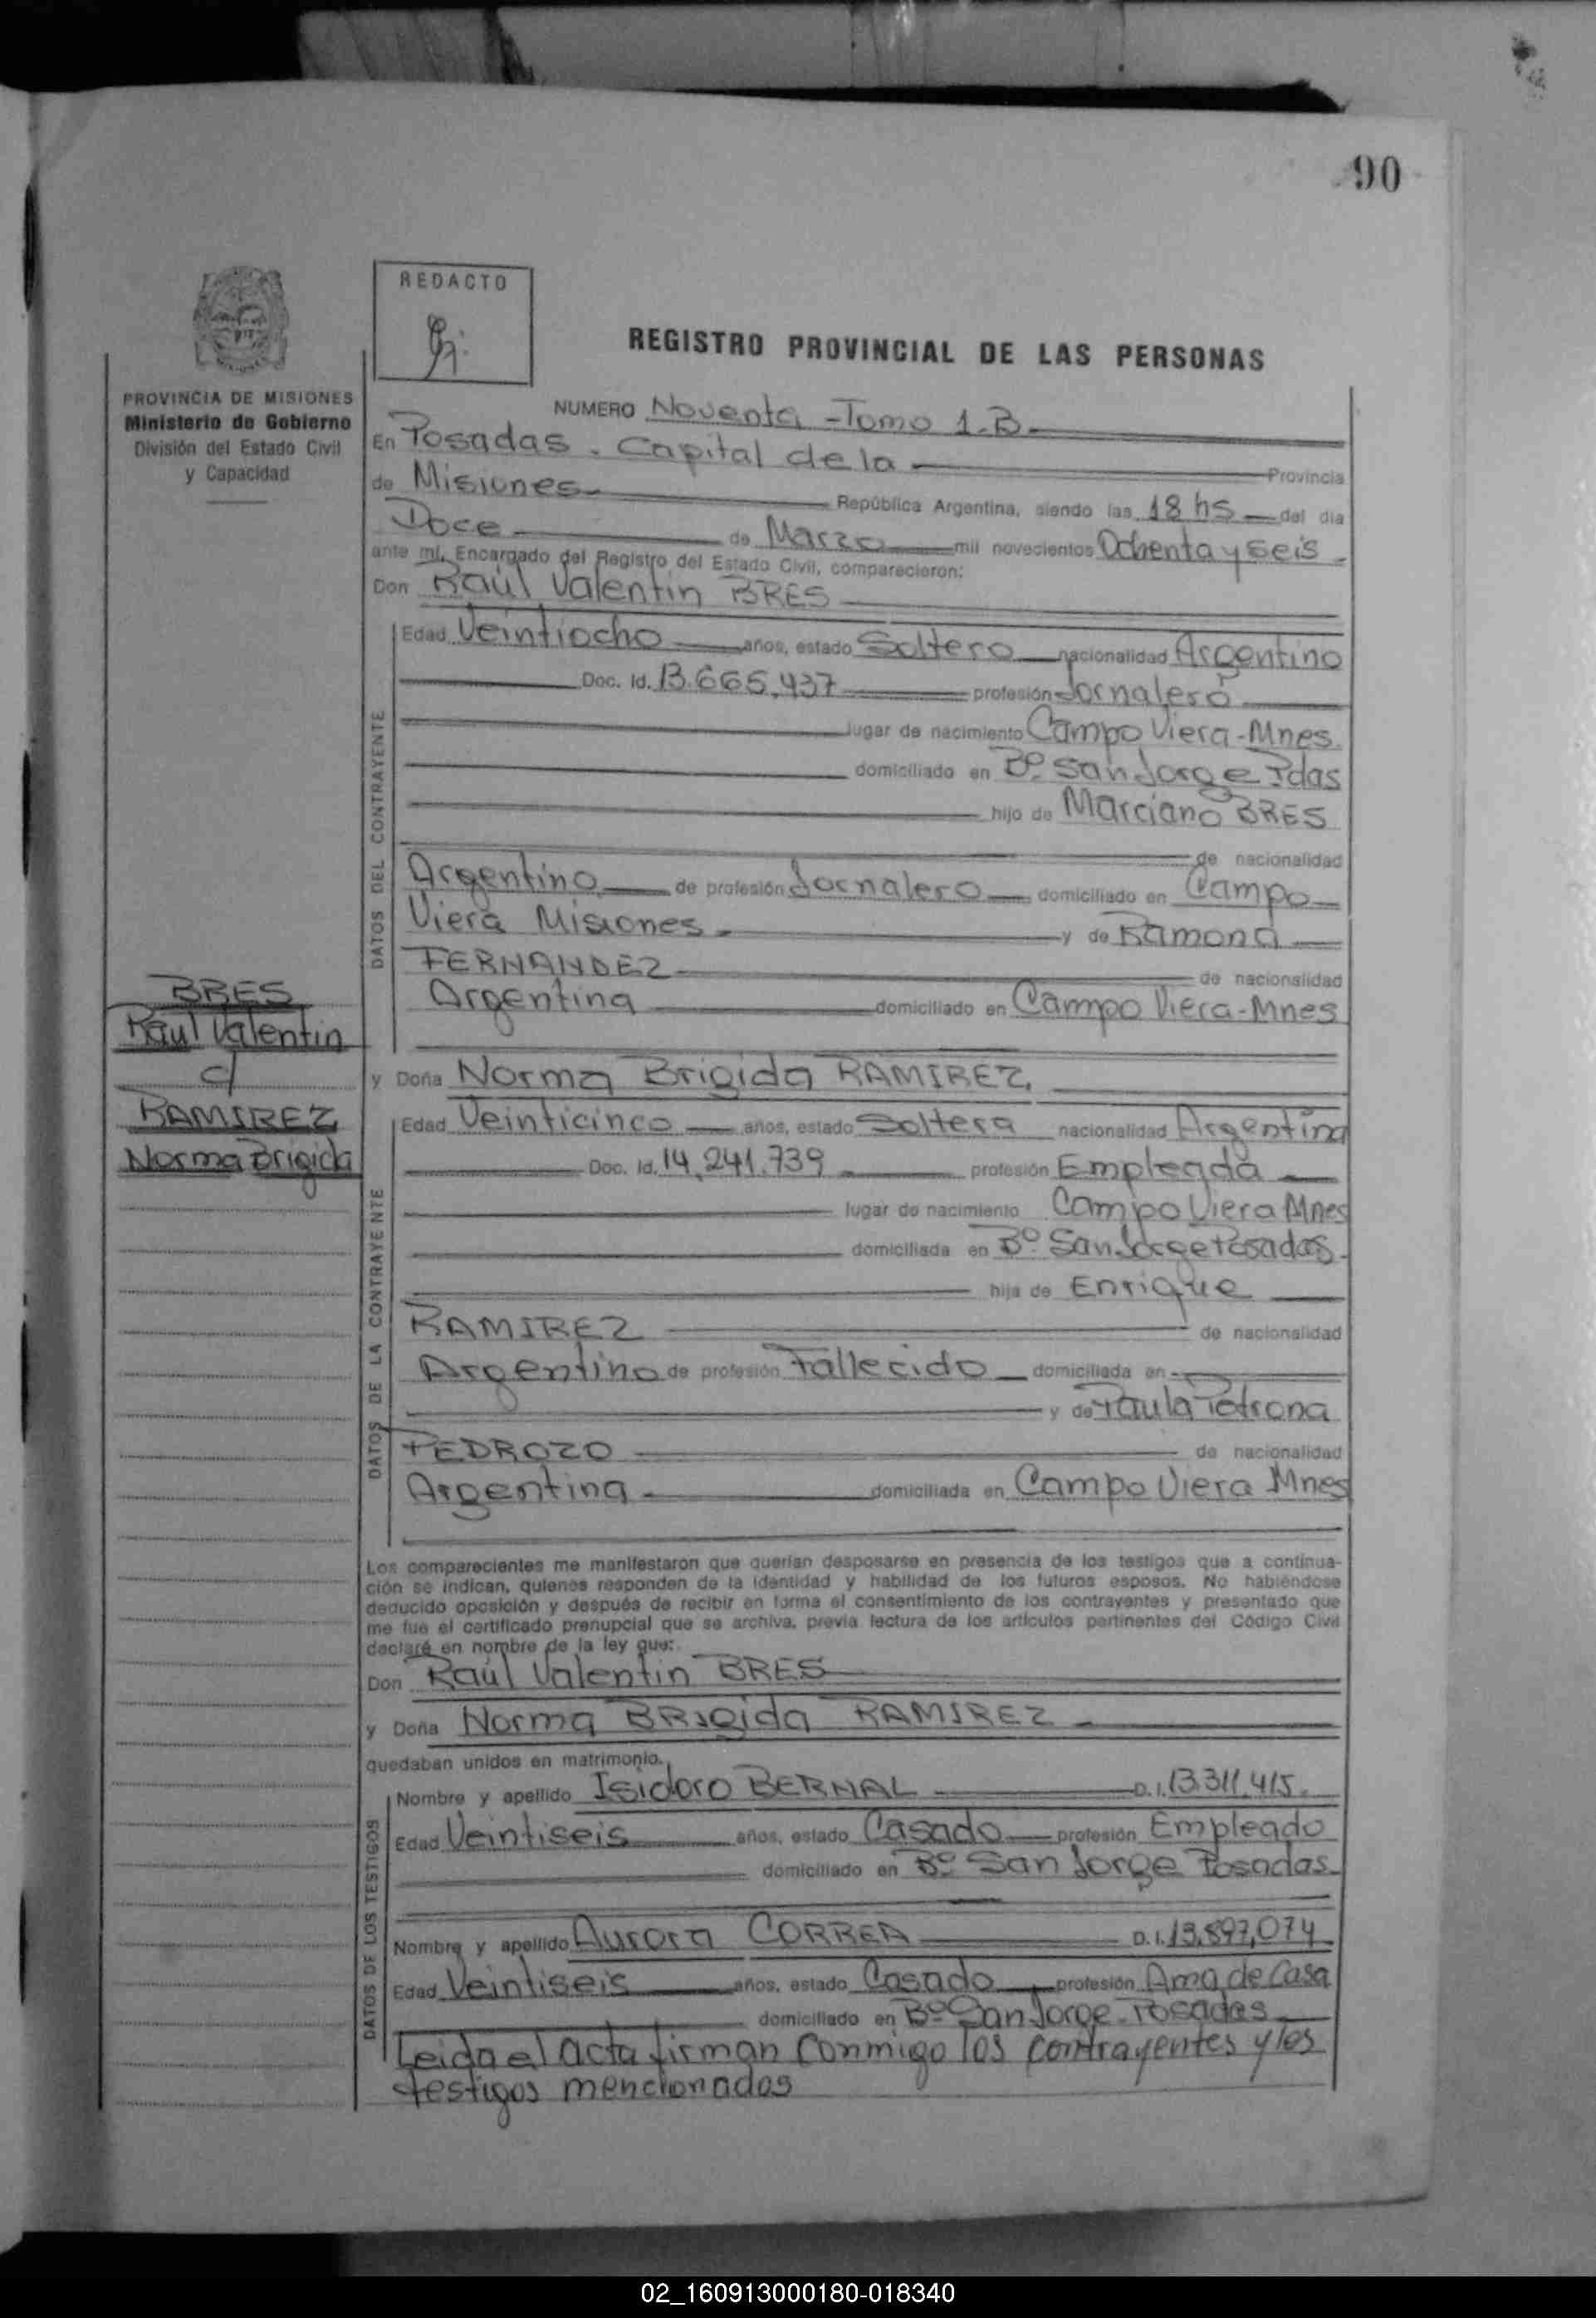 90
REDACTO
REGISTRO PROVINCIAL DE LAS PERSONAS
PROVINCIA DE MISIONES
Ministerio de Gobierno
División del Estado Civil
y Capacidad
NUMERO Noventa - Tomo 1-B
En Posadas. Capital de la Provincia
de Misiones República Argentina, siendo las 18 hs del dia
Doce de Marzo mil novecientos Ochenta y seis
ante mí, Encargado del Registro del Estado Civil, comparecieron:
Don Raúl Valentin BRES
DATOS DEL CONTRAYENTE
Edad Veintiocho años, estado Soltero nacionalidad Argentino
Doc. Id. 13.665.437 profesión Jornalero
lugar de nacimiento Campo Viera-Mnes
domiciliado en Bº San Jorge Pdas
hijo de Marciano BRES
de nacionalidad
Argentino de profesión Jornalero domiciliado en Campo
Viera Misiones. y de Ramona
FERNANDEZ de nacionalidad
Argentina domiciliado en Campo Viera-Mnes
BRES
Raul Valentin
c/
RAMIREZ
Norma Brigida
y Doña Norma Brigida RAMIREZ
DATOS DE LA CONTRAYENTE
Edad Veinticinco años, estado Soltera nacionalidad Argentina
Doc. Id. 14.241.739 profesión Empleada
lugar de nacimiento Campo Viera Mnes
domiciliada en Bº San Jorge Posadas
hija de Enrique
RAMIREZ de nacionalidad
Argentino de profesión Fallecido domiciliada en
y de Paula Petrona
PEDROZO de nacionalidad
Argentina domiciliada en Campo Viera Mnes
Los comparecientes me manifestaron que querían desposarse en presencia de los testigos que a continua-
ción se indican, quienes responden de la identidad y habilidad de los futuros esposos. No habiéndose
deducido oposición y después de recibir en forma el consentimiento de los contrayentes y presentado que
me fue el certificado prenupcial que se archiva, previa lectura de los artículos pertinentes del Código Civil
declaré en nombre de la ley que:
Don Raúl Valentin BRES
y Doña Norma BRIgida RAMIREZ
quedaban unidos en matrimonio.
DATOS DE LOS TESTIGOS
Nombre y apellido Isidoro BERNAL D.I. 13.311.415
Edad Veintiseis años, estado Casado profesión Empleado
domiciliado en Bº San Jorge Posadas
Nombre y apellido Aurora CORREA D.I. 13.897.074
Edad Veintiseis años, estado Casado profesión Ama de Casa
domiciliado en Bº San Jorge-Posadas
Leida el acta firman conmigo los contrayentes y los
testigos mencionados
02_160913000180-018340